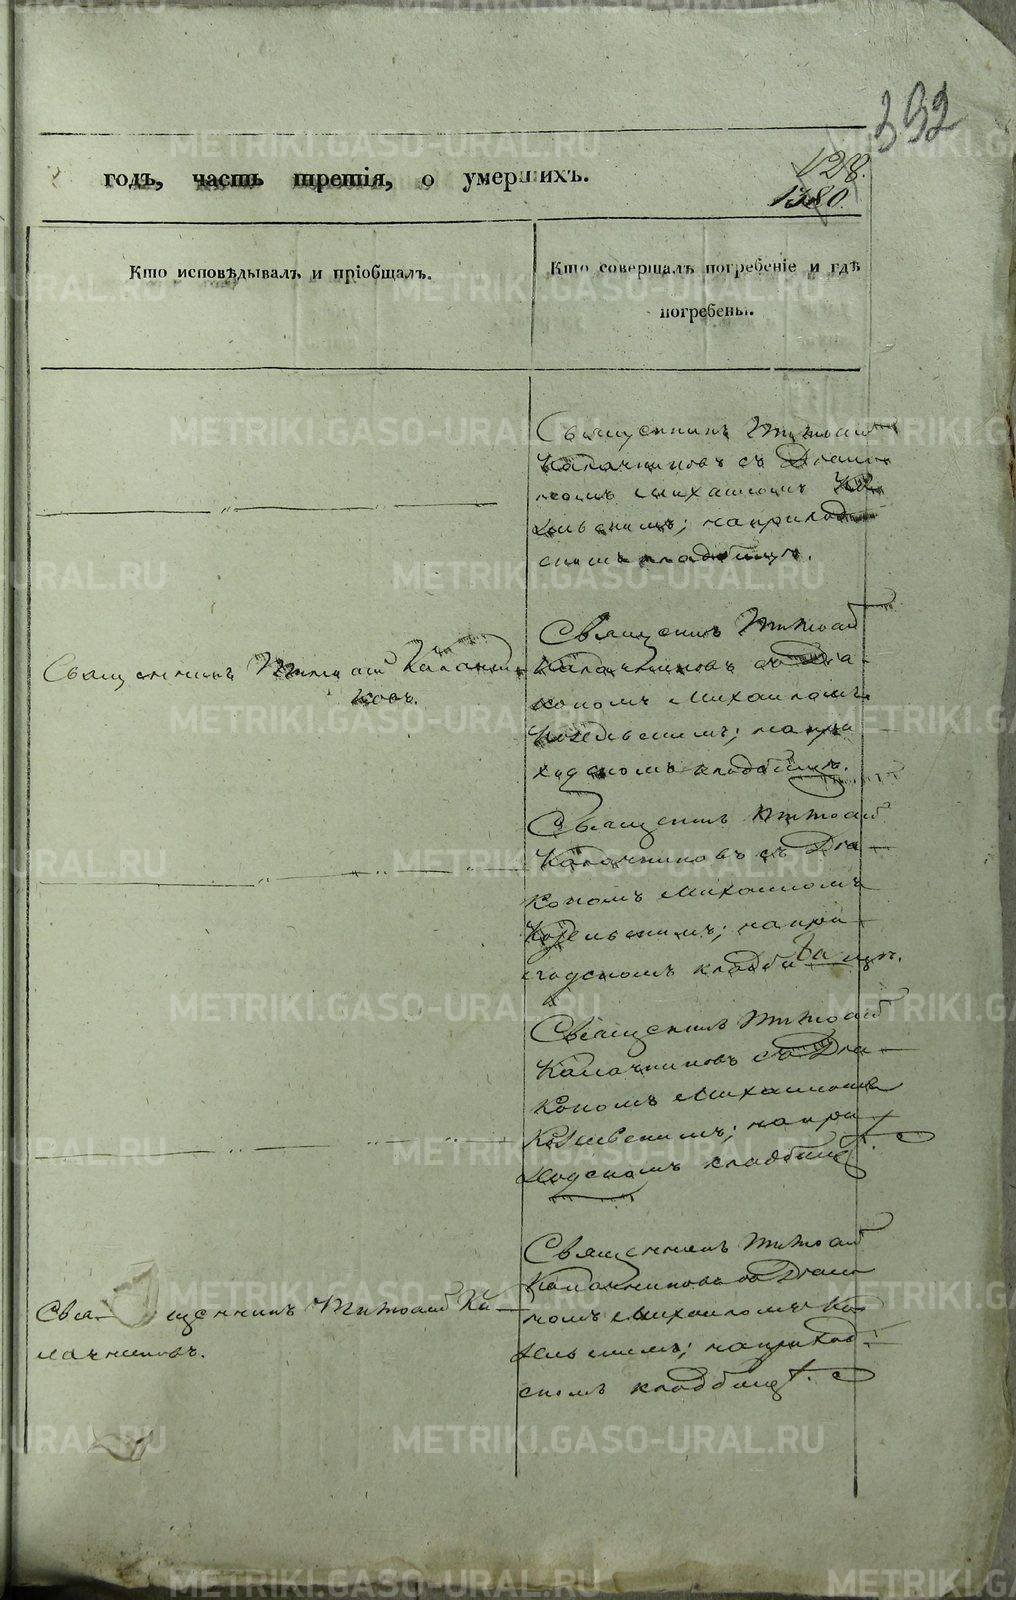 392
128.
1380.
годъ, часть третія, о умершихъ.
Кто исповѣдывалъ и пріобщалъ.
Кто совершалъ погребеніе и гдѣ
погребены.
Священникъ
Калачниковъ съ Діако-
номъ Михаиломъ
на приход
скомъ кладбищѣ.
Священникъ Калачни-
ковъ.
Священникъ
Калачниковъ съ Діа-
кономъ Михаиломъ
на при
ходскомъ кладбищѣ.
Священникъ
Калачниковъ съ Діа-
кономъ Михаиломъ
на при
ходскомъ кладбищѣ.
Священникъ
Калачниковъ съ Діа-
кономъ Михаиломъ
на при
ходскомъ кладбищѣ.
Священникъ Ка-
лачниковъ.
Священникъ
Калачниковъ съ Діако
номъ Михаиломъ
на приход
скомъ кладбищѣ.
METRIKI.GASO-URAL.RU